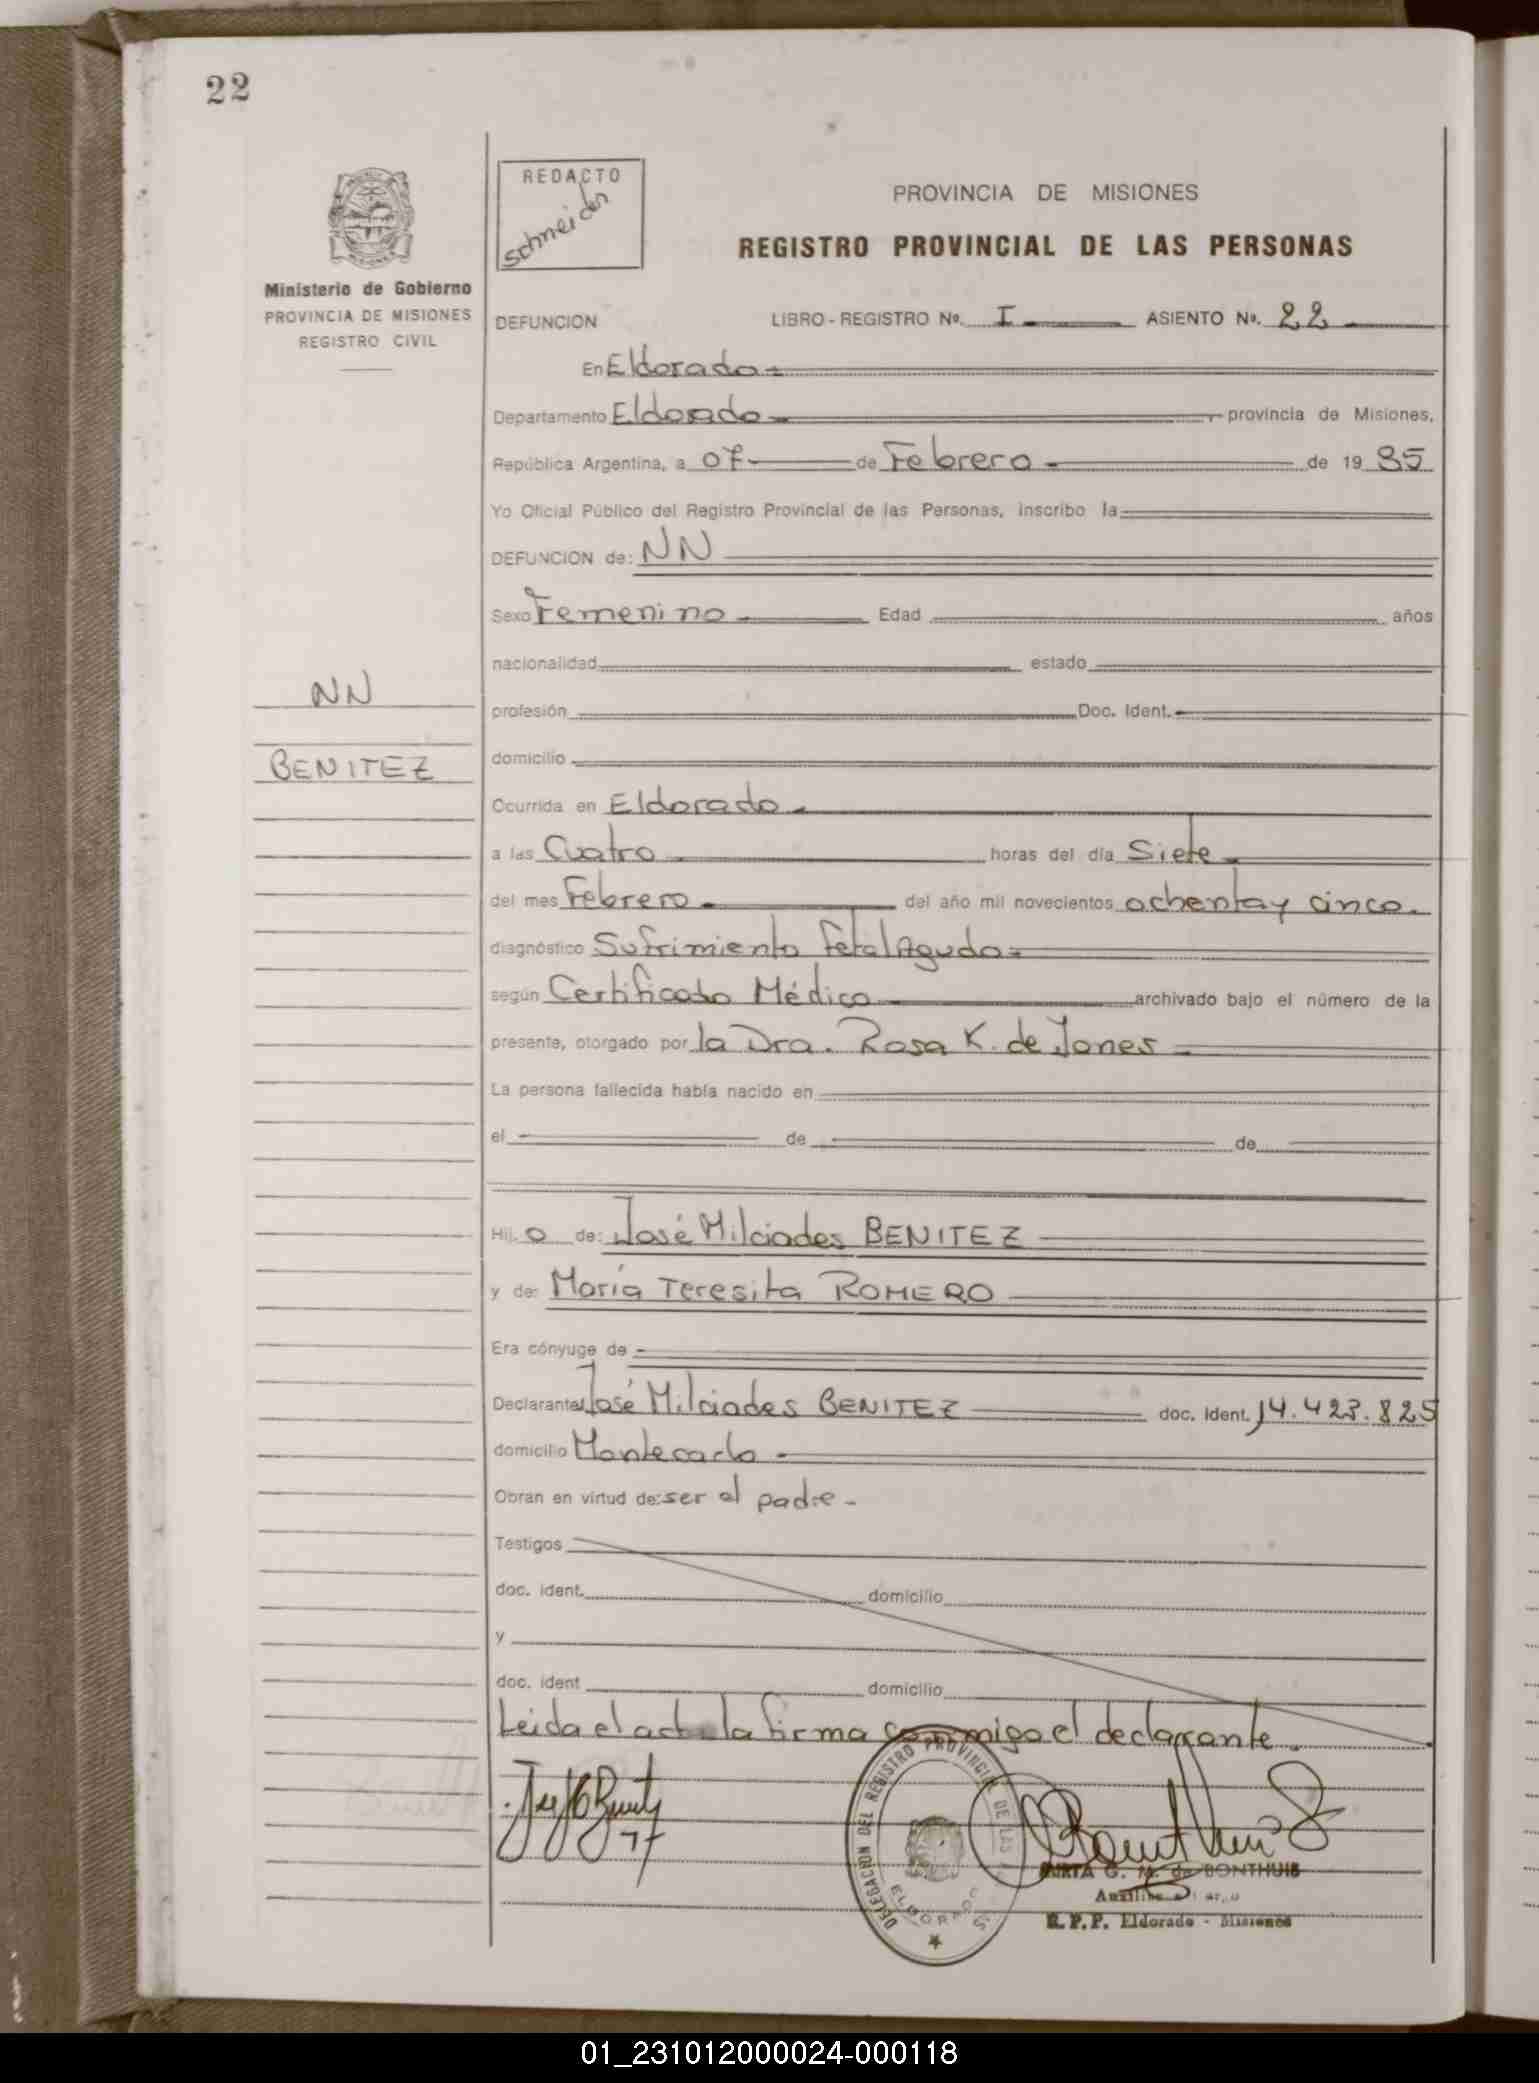 22
REDACTO
Schneider
PROVINCIA DE MISIONES
REGISTRO PROVINCIAL DE LAS PERSONAS
Ministerio de Gobierno
PROVINCIA DE MISIONES
REGISTRO CIVIL
DEFUNCION LIBRO - REGISTRO Nº. I ASIENTO Nº. 22
En Eldorado
Departamento Eldorado, provincia de Misiones,
República Argentina, a 07 de Febrero de 19 85
Yo Oficial Público del Registro Provincial de las Personas, inscribo la
DEFUNCION de: NN
Sexo Femenino Edad años
nacionalidad estado
NN
profesión Doc. Ident.
BENITEZ
domicilio
Ocurrida en Eldorado
a las Cuatro horas del día Siete
del mes Febrero del año mil novecientos ochenta y cinco.
diagnóstico Sufrimiento Fetal Agudo
según Certificado Médico archivado bajo el número de la
presente, otorgado por la Dra. Rosa K. de Jones
La persona fallecida había nacido en
el de de
Hij o de: José Milciades BENITEZ
y de: María Teresita ROMERO
Era cónyuge de
Declarante José Milciades BENITEZ doc. ident. 14.423.825
domicilio Montecarlo
Obran en virtud de: ser el padre
Testigos
doc. ident. domicilio
y
doc. ident domicilio
Leida el acta la firma conmigo el declarante.
DELEGACION DEL REGISTRO PROVINCIAL DE LAS
ELDORADO
G. M. de BONTHUIS
R. P. P. Eldorado - Misiones
01_231012000024-000118